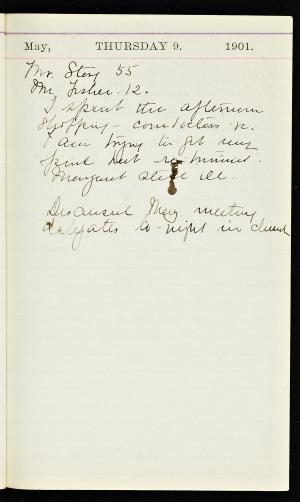 May, THURSDAY 9. 1901.
Mr. Story 55
Mr. Fisher. 12.
I spent the afternoon
shopping - &c.
I am trying to get my
pink hat re-trimmed.
Margaret still ill.
Discussed May meeting
delegates to-night in church